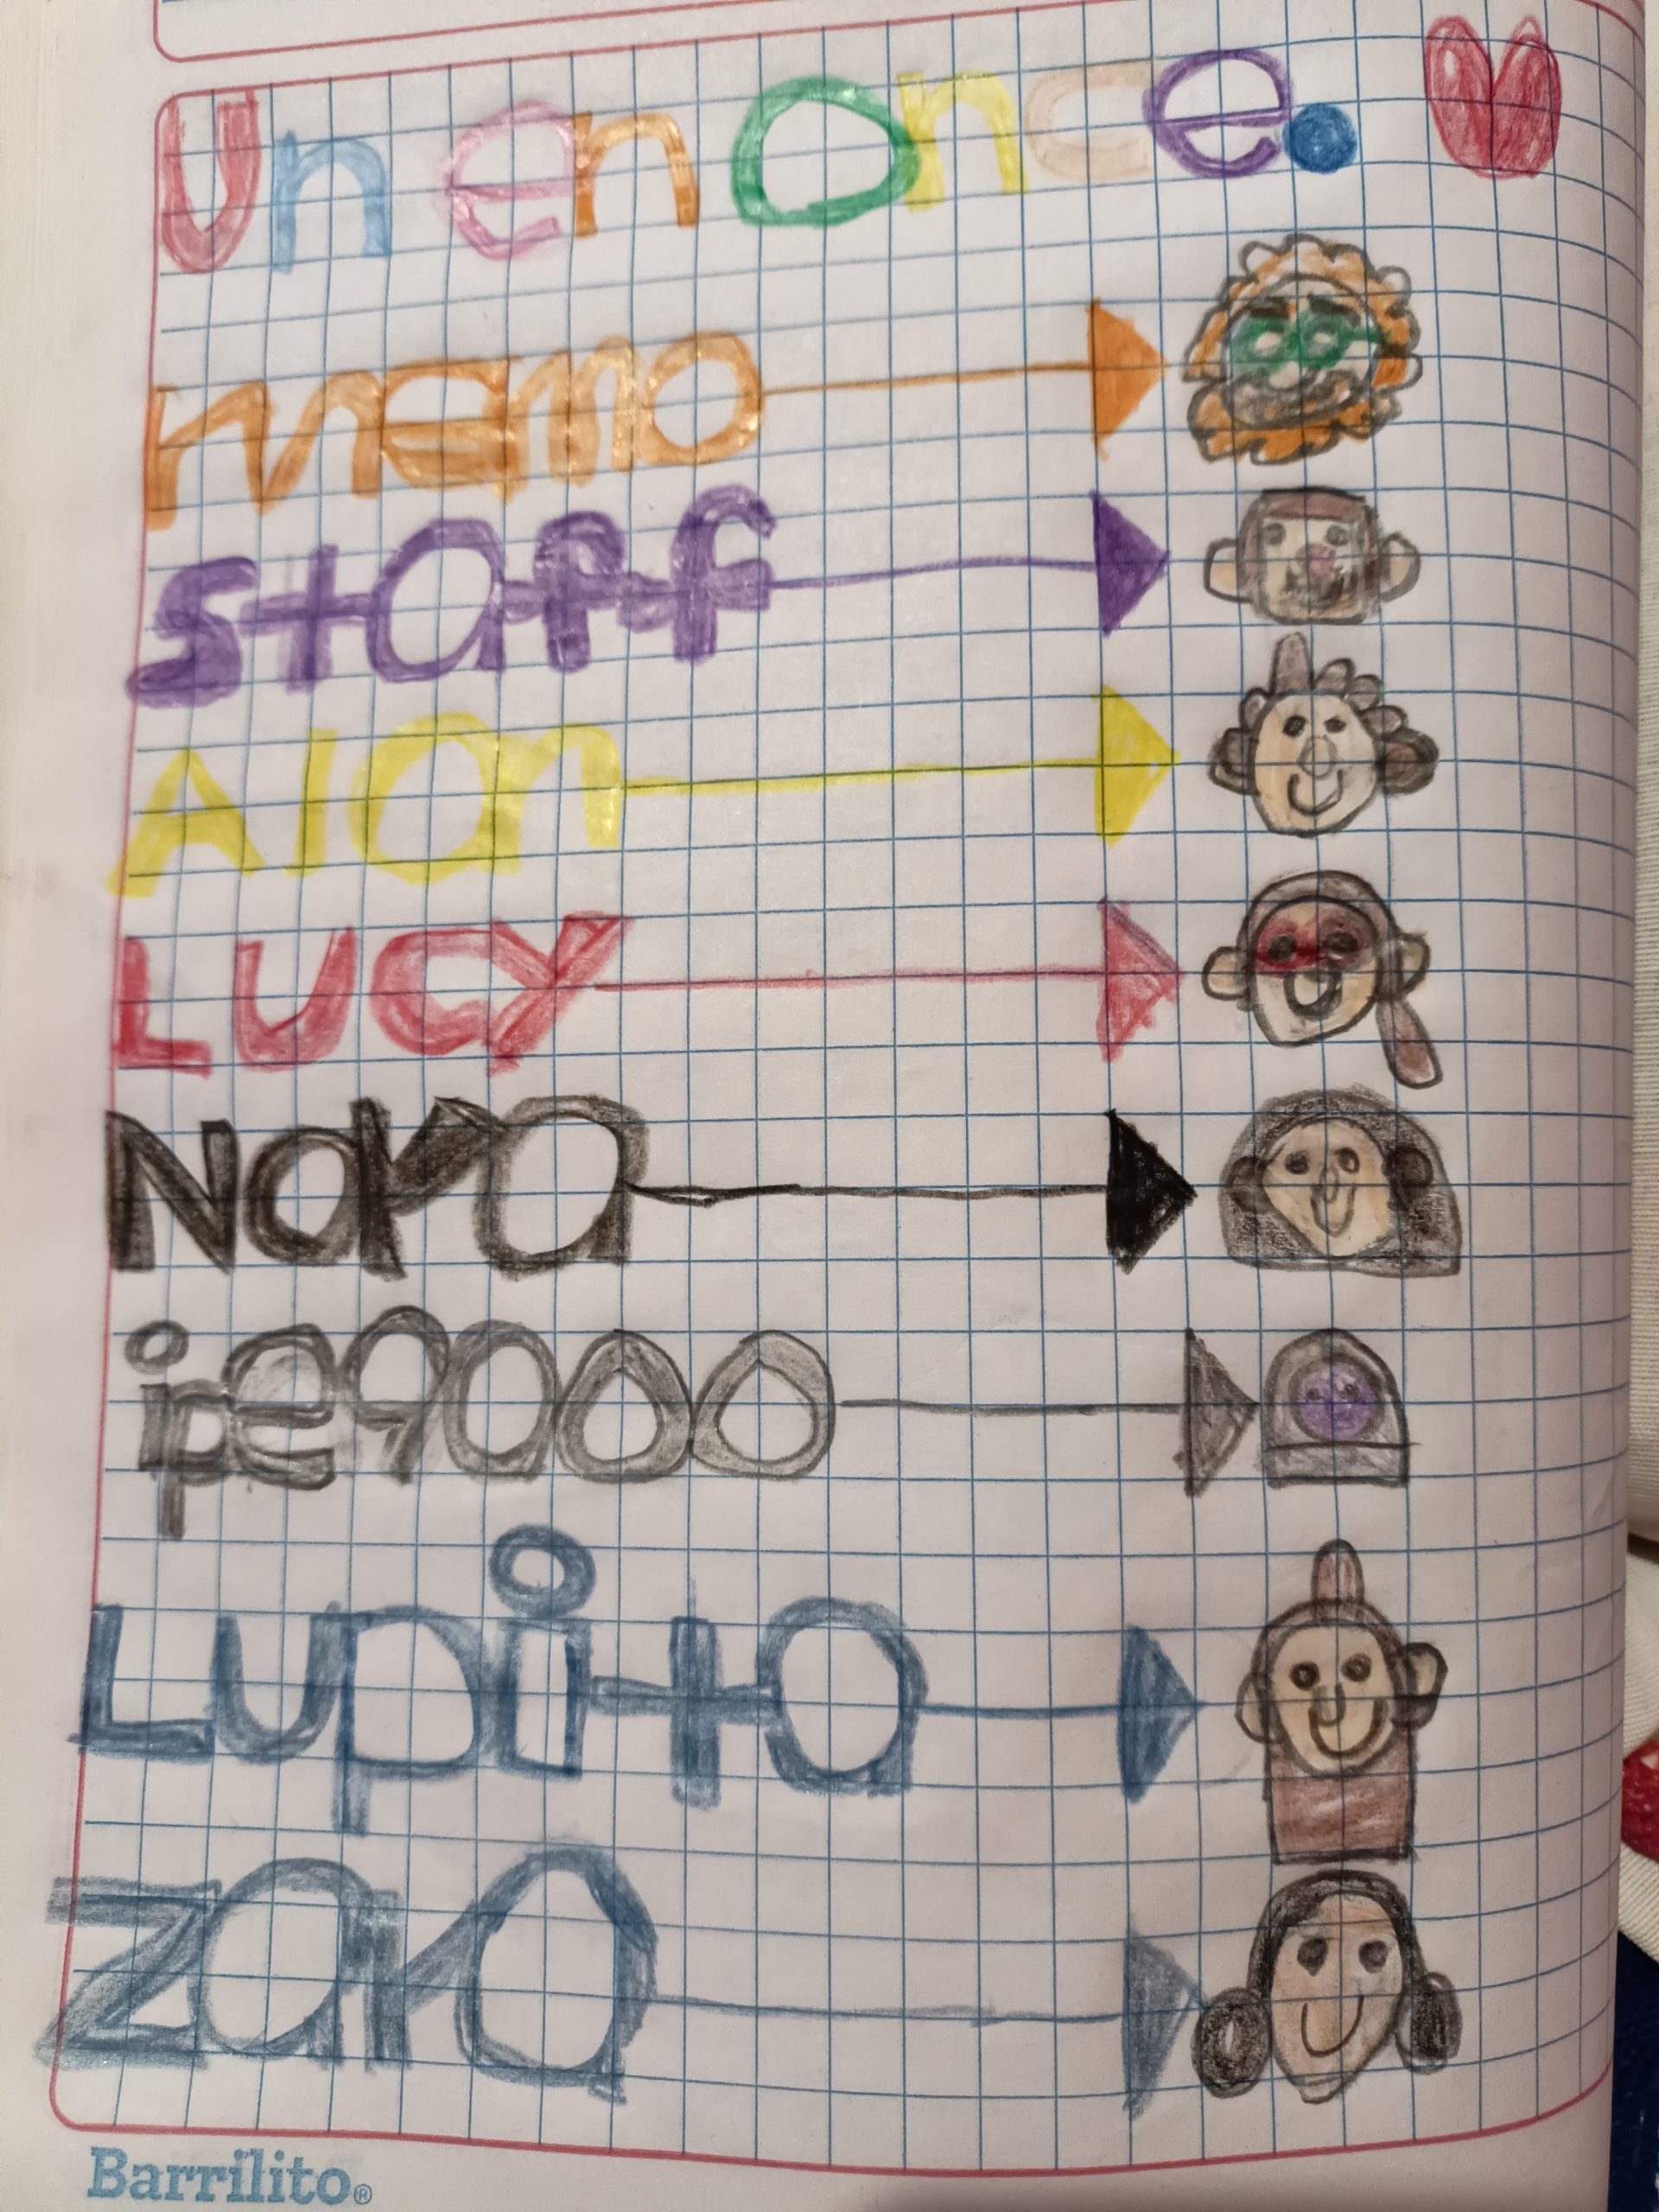 Un en Once.
memo
staff
Alan
LUCY
Nara
ipe9000
Lupita
zara
Barrilito®